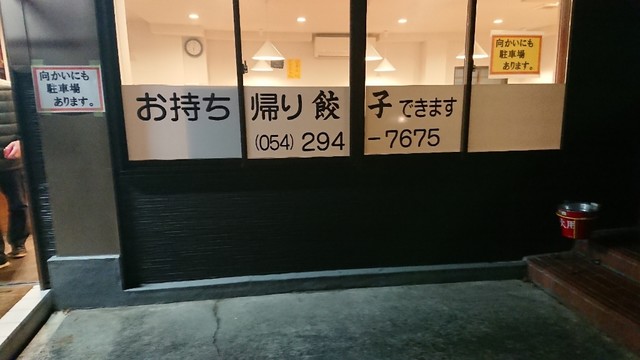 向かいにも
駐車場
あります。
お持ち帰り餃子できます
(054)294-7675
向かいにも
駐車場
あります。
火用